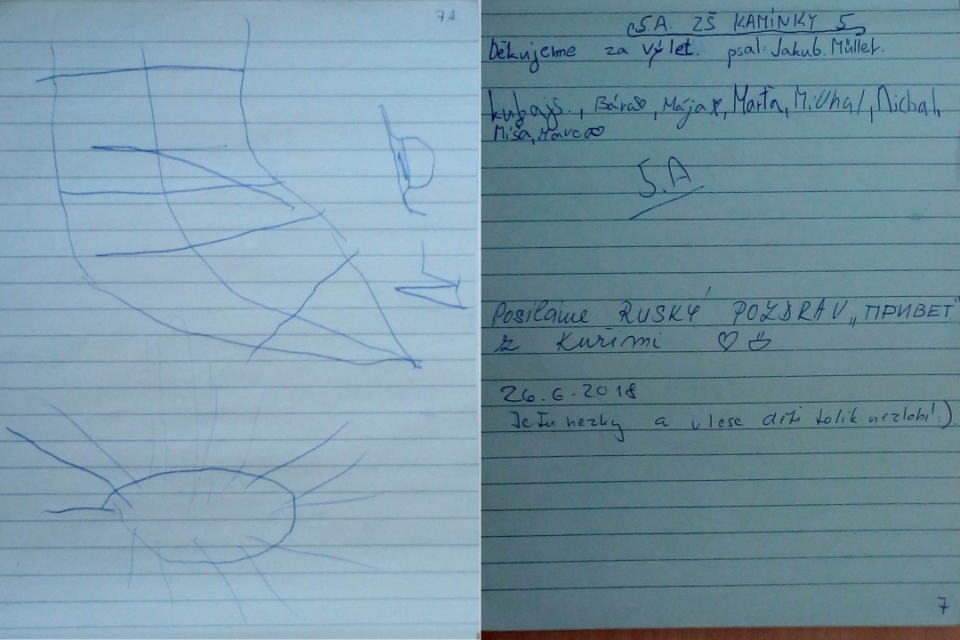 7A
5.A. ZŠ KAMÍNKY 5
Děkujeme za výlet. psal: Jakub. Müller.
Kubajs., Bára, Mája, Marta, Michal, Michal,
Míša, Marco
5.A
Posíláme RUSKÝ POZDRAV „ПРИВЕТ"
z Kuřimi ♡
26.6.2018
Je tu hezky a v lese děti tolik nezlobí :)
7